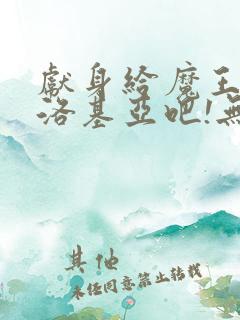 獻身給魔王
洛基亞吧!無
其他
未经同意禁止转载